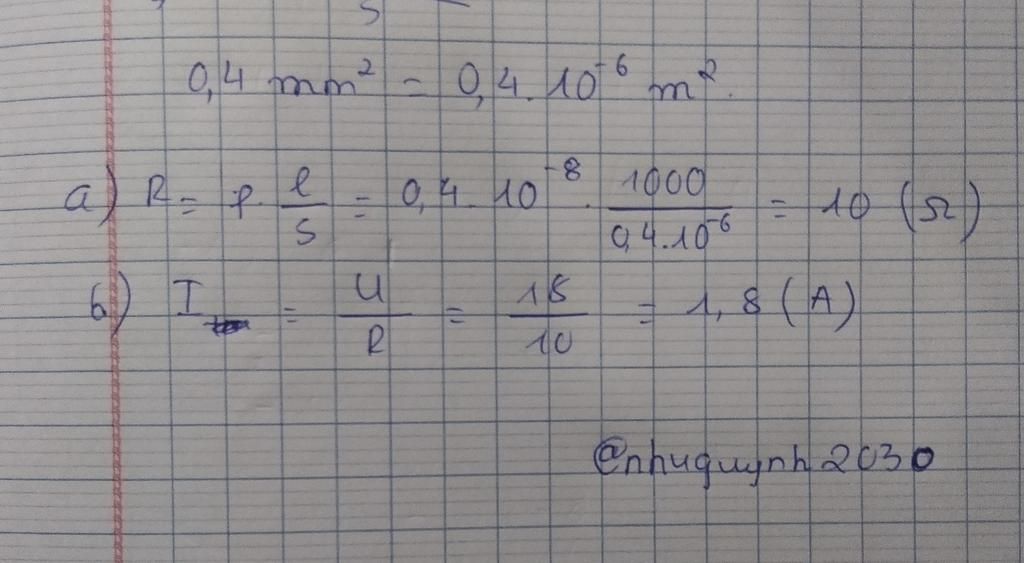 S
0,4 mm² = 0,4. 10⁻⁶ m².
a) R = ρ. l/S = 0,4. 10⁻⁸ . 1000/0,4.10⁻⁶ = 10 (Ω)
b) I = U/R = 18/10 = 1,8 (A)
@nhuquynh2030